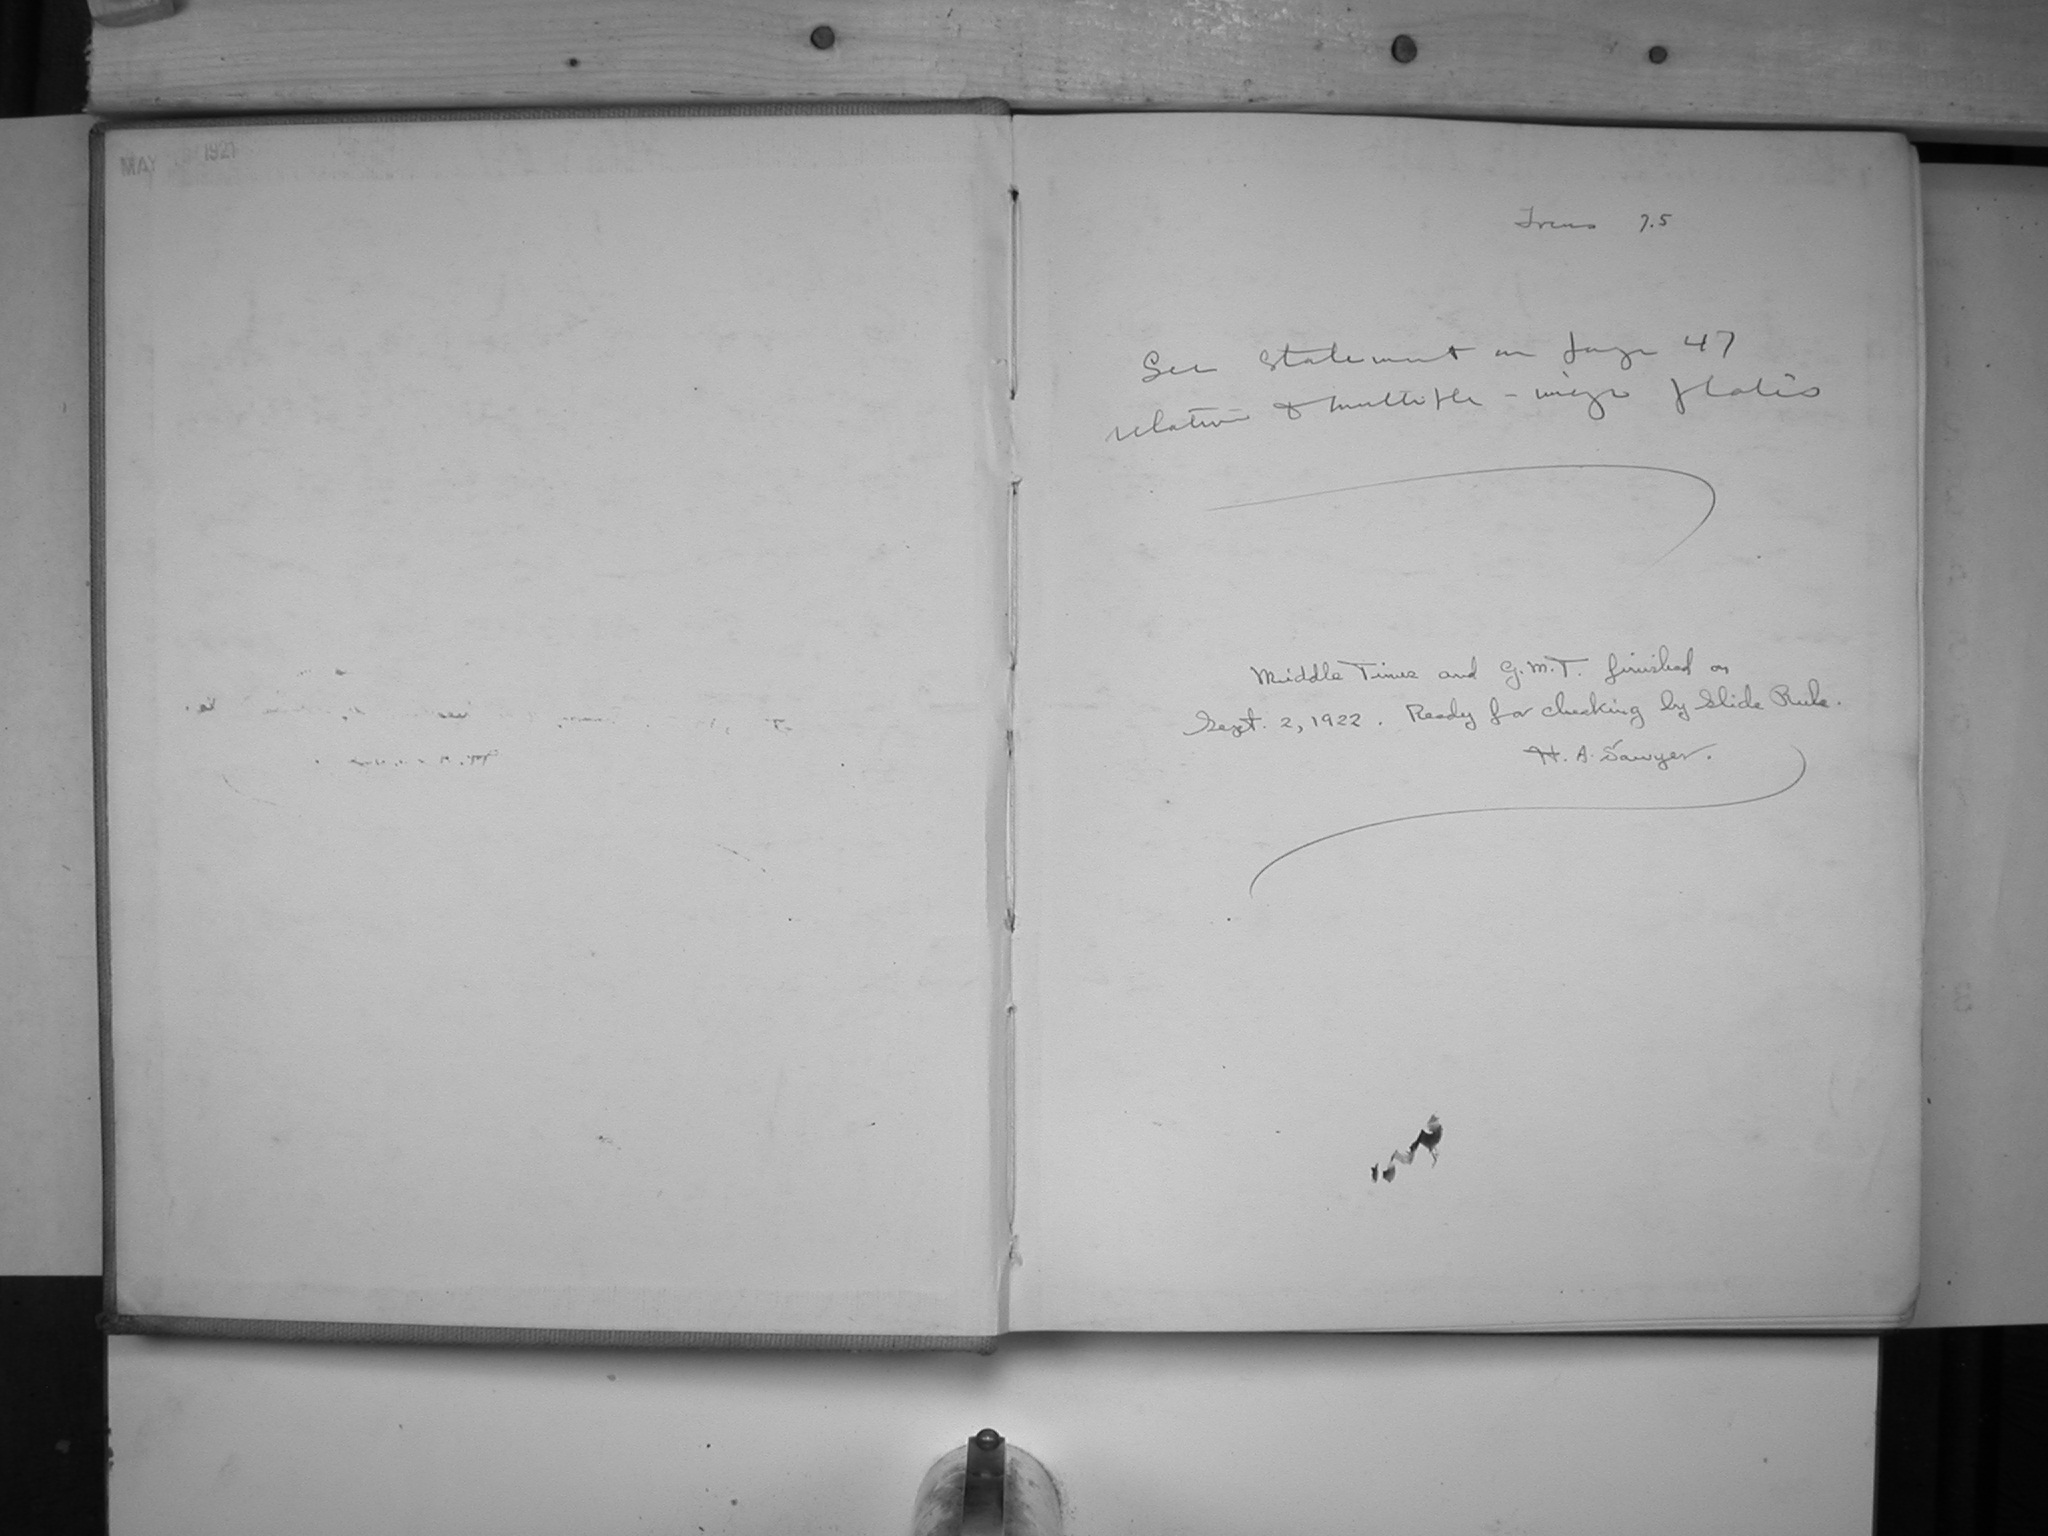 MAY 1921
7.5
See statement on page 47
relative to multiple - image plates
Middle Times and G.M.T. finished on
Sept. 2, 1922. Ready for checking by Slide Rule.
H. A. Sawyer.